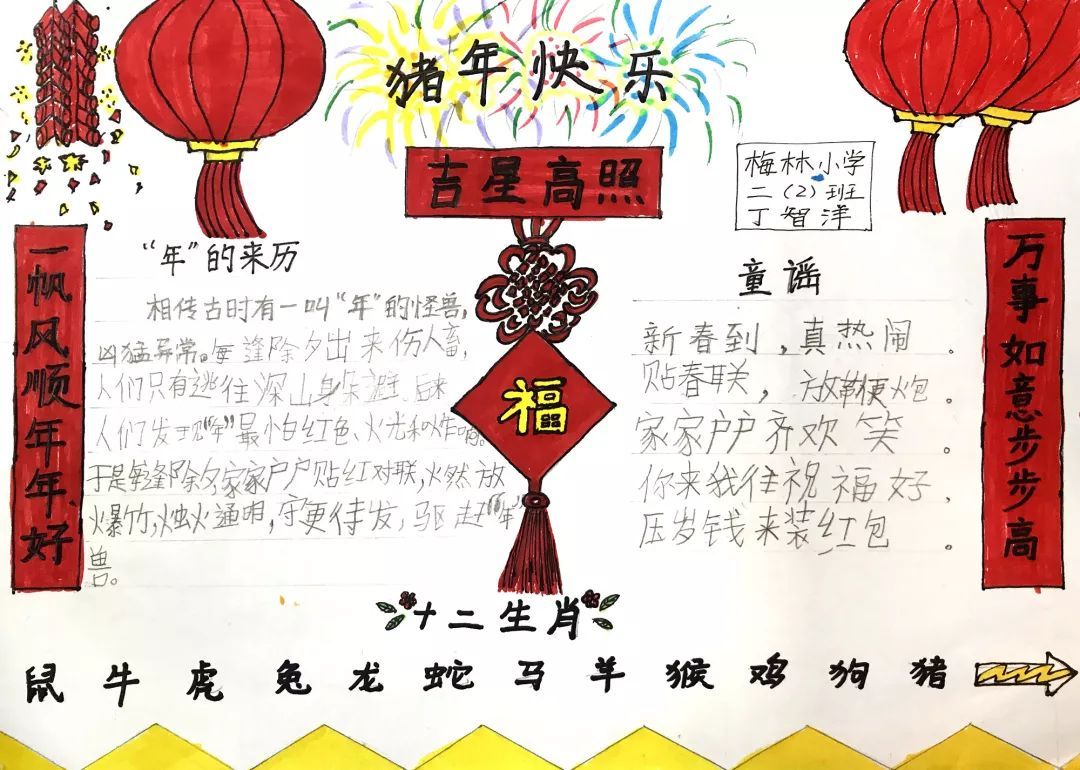 猪年快乐
吉星高照
梅林小学
二(2)班
丁智洋
一帆风顺年年好
万事如意步步高
“年”的来历
相传古时有一叫“年”的怪兽,
凶猛异常。每逢除夕出来伤人畜,
人们只有逃往深山躲避。后来
人们发现“年”最怕红色、火光和炸响。
于是每逢除夕家家户户贴红对联,燃放
爆竹,烛火通明,守更待发,驱赶“年”
兽。
福
童谣
新春到,真热闹。
贴春联,放鞭炮。
家家户户齐欢笑。
你来我往祝福好,
压岁钱来装红包。
十二生肖
鼠牛虎兔龙蛇马羊猴鸡狗猪